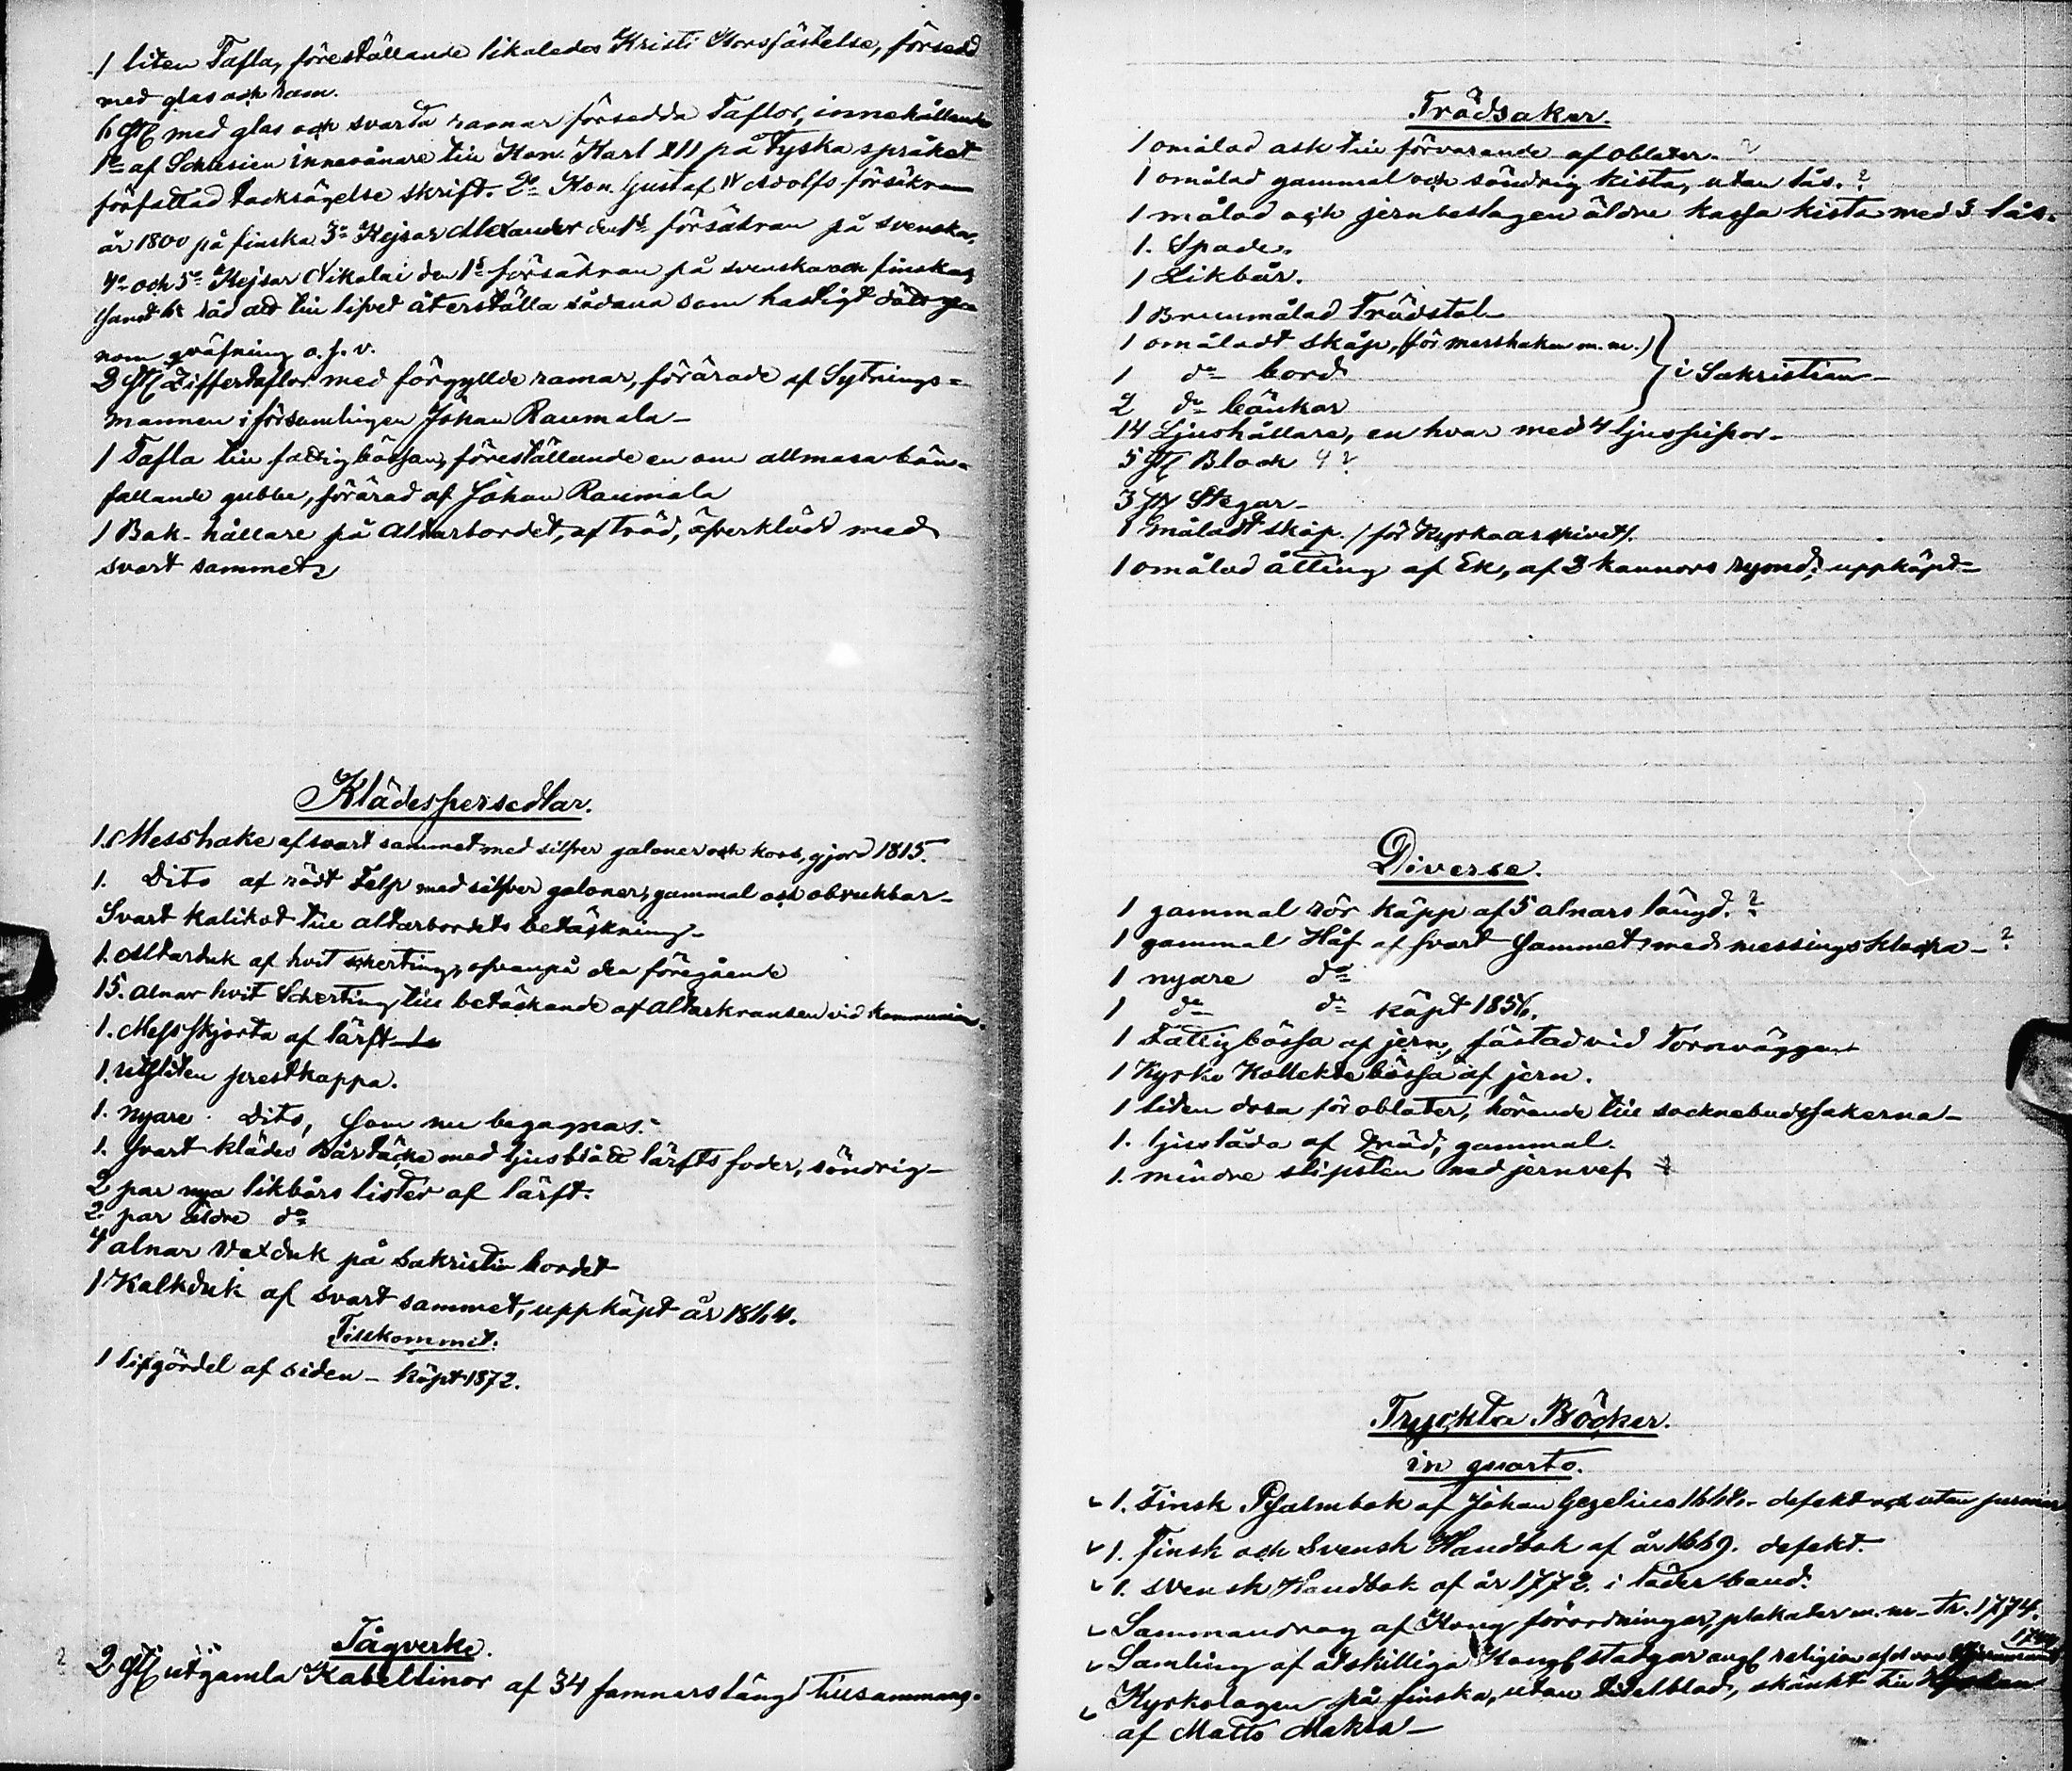 1 liten Tafla, föreställande likaledes Kristi Korsfästelse, försedd
med glas och ram.
6 st med glas och svarta ramar försedda Taflor, innehållande
1o af Schlesien innevånare till Kon. Karl XII på Tyska språket
författad tacksägelse skrift. 2o Kon. Gustaf IV Adolfs försäkran
år 1800 på finska 3o Kejsar Alexander den 1s försäkran på svenska,
4o och 5o Kejsar Nikolai den 1s försäkran på svenska och finska,
samt 6o råd att till lifvet återställa sådana som hastigt dödt ge-
nom qväfning o.s.v.
3 st Ziffertaflor med förgyllde ramar, förärade af Sytnings=
mannen i församlingen Johan Raumala -
1 Tafla till fattigbössan, föreställande en om allmosa bön-
fallande gubbe, förärad af Johan Raumala
1 Bok-hållare på Altarbordet, af träd, öfverklädd med
svart sammet
Klädespersedlar.
1. Messhake af svart sammet med silfver galoner och kors, gjord 1815.
1. Dito af rödt Felp med silfver galoner, gammal och obrukbar -
Svart kalikot till altarbordets betäckning -
1. Altarduk af hvit scherting, ofvanpå den föregående
15. alnar hvit Scherting till betäckande af altarkransen vid kommunion.
1. Messskjorta af lärft
1. utsliten prestkappa.
1. nyare Dito, som nu begagnas.
1. svart klädes Bårtäcke med ljusblått lärfts foder, söndrig -
2 par nya likbårs lister af lärft.
2 par äldre do
4 alnar Vaxduk på sakristie bordet
1 Kalkduk af svart sammet, uppköpt år 1864.
Tillkommit.
1 Lifgördel af siden - köpt 1872.
Tågverke.
? 2 st utgamla Kabeltinor af 34 famnars längd tillsammans.
Trädsaker.
1 omålad ask till förvarande af oblater. ?
1 omålad gammal och söndrig kista, utan lås. ?
1 målad och jernbeslagen äldre kassa kista med 3 lås.
1. Spade.
1 Likbår.
1 Brunmålad Trädstol
1 omåladt skåp, (för messhaken m.m.)
1 do bord } i Sakristian -
2 do bänkar
14 Ljushållare, en hvar med 4 ljuspipor -
5 st Block 4 ?
3 st Stegar -
1 måladt skåp. / för Kyrkoarkivet/.
1 omålad åtting af Ek, af 3 kannors rymd, uppköpt -
Diverse.
1 gammal rör käpp af 5 alnars längd. ?
1 gammal Håf af svart sammet, med messings klocka - ?
1 nyare do
1 do do köpt 1856.
1 Fattigbössa af jern, fästad vid Tornväggen
1 Kyrko Kollekte bössa af jern.
1 liten dosa för oblater, hörande till sockneбudssakerna -
1. ljuslåda af träd, gammal.
1. mindre slipsten med jernvef
Tryckta Böcker.
in quarto.
1. Finsk Psalmbok af Johan Gezelius - defekt och utan permar
1. Finsk och Svensk Handbok af år 1669. defekt.
1. svensk Handbok af år 1772. i läder band.
Sammandrag af Kong förordningar, plakater m.m - Tr. 1774.
Samling af åtskilliga Kongl stadgar angl religion
Kyrkolagen på finska, utan titelblad, skänkt till Kyrkan
af Matts Makla -